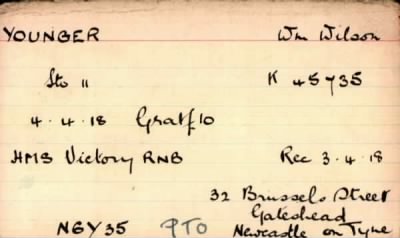 YOUNGER Wm Wilson
Sto II K 45735
4.4.18 Grat £10
HMS Victory RNB Rec 3.4.18
32 Brussels Street
Gateshead
NGY35 PTO Newcastle on Tyne